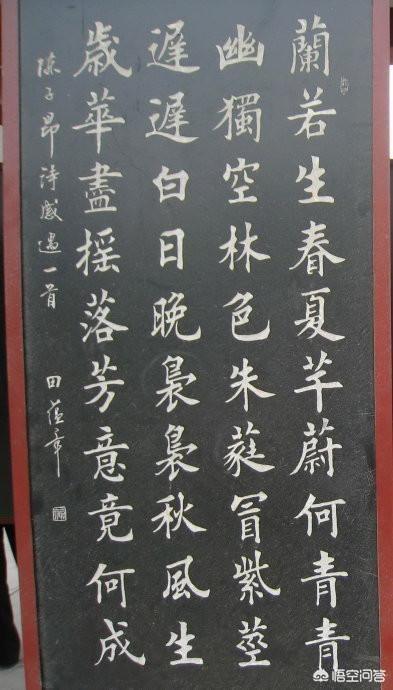 蘭若生春夏芊蔚何青青
幽獨空林色朱蕤冒紫莖
遲遲白日晚裊裊秋風生
歲華盡摇落芳意竟何成
陳子昂詩感遇一首 田蘊章
悟空问答